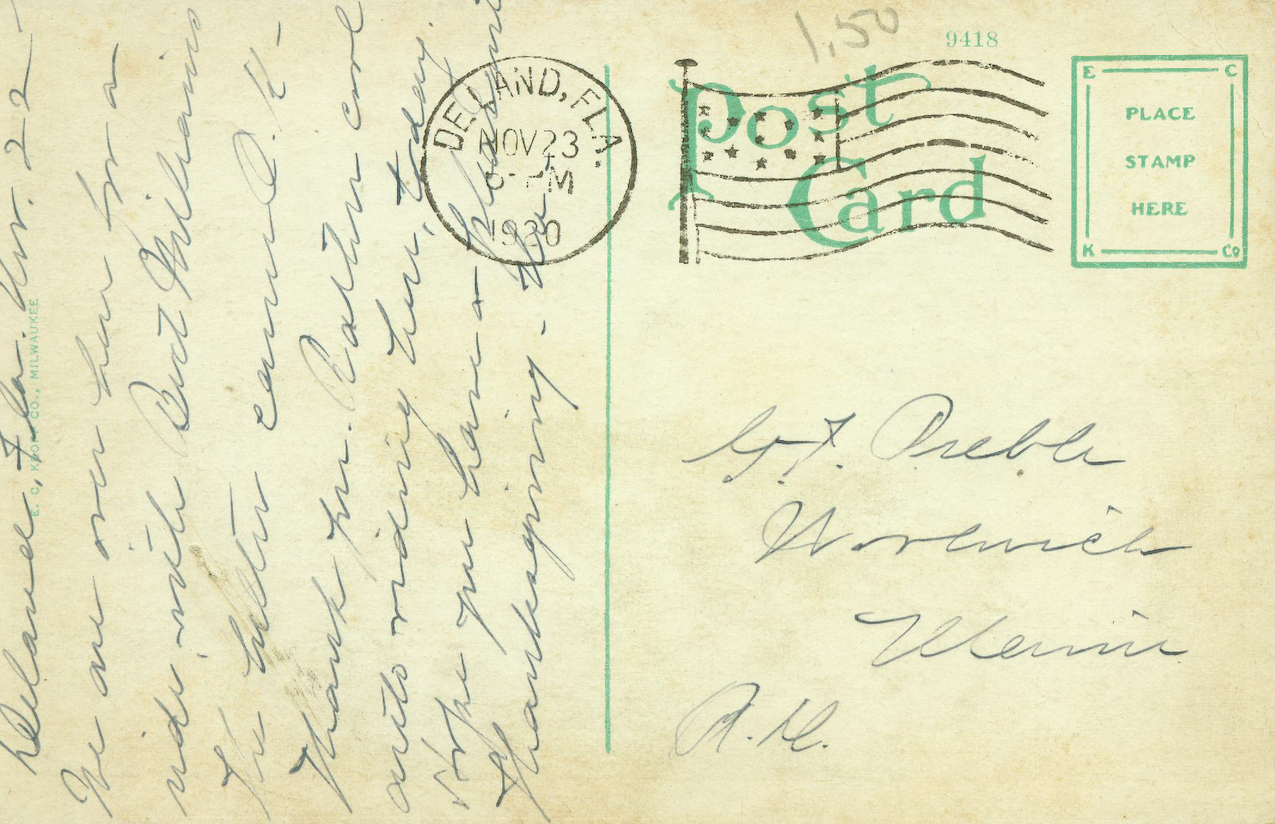 Deland, Fla. Nov. 22 -
We are over here for a
ride with Bert Williams
The letter came O.K -
Thank you. Rather cool
auto riding here, today.
Hope you have a pleasant
Thanksgiving -
E. C. KROPP CO., MILWAUKEE
DELAND, FLA.
NOV 23
PM
1930
1.50
9418
Post
Card
E C
PLACE
STAMP
HERE
K Co
G. F. Preble
Woolwich
Maine
R.D.